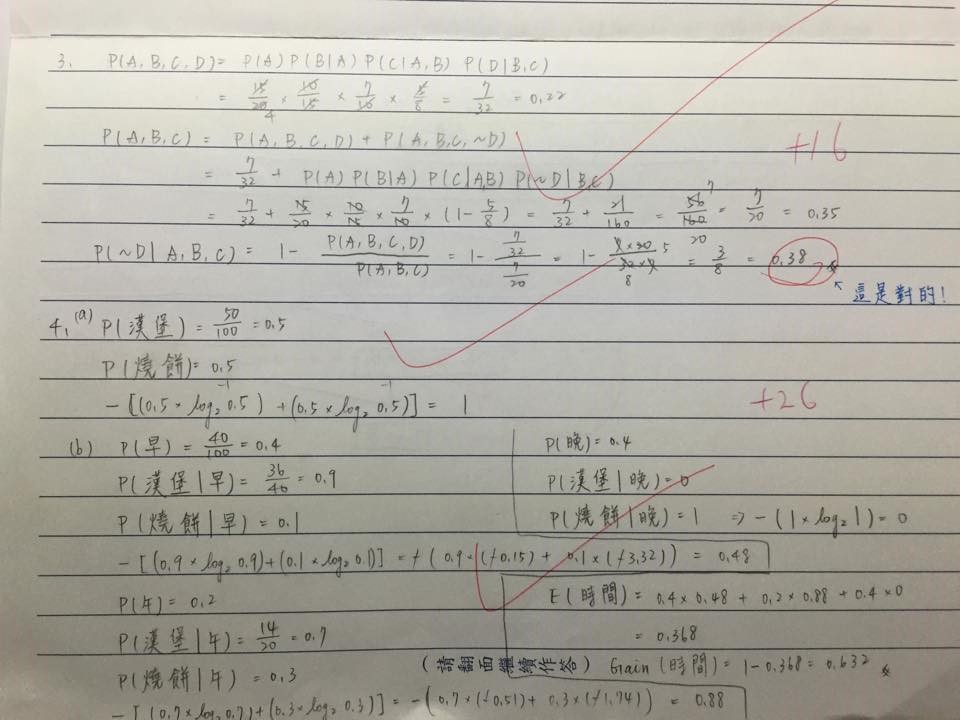 3. P(A,B,C,D)= P(A) P(B|A) P(C|A,B) P(D|B,C)
= 15/20 × 10/15 × 7/10 × 5/8 = 7/32 = 0.22
4
P(A,B,C) = P(A,B,C,D) + P(A,B,C,~D)
+16
= 7/32 + P(A) P(B|A) P(C|A,B) P(~D|B,C)
= 7/32 + 15/20 × 10/15 × 7/10 × (1-5/8) = 7/32 + 21/160 = 56/160 = 7/20 = 0.35
7
20
P(~D|A,B,C) = 1- P(A,B,C,D)/P(A,B,C) = 1- (7/32)/(7/20) = 1- = 3/8 = 0.38
5
8
這是對的!
4. (a) P(漢堡) = 50/100 = 0.5
P(燒餅)= 0.5
-1 -1
-[(0.5×log₂0.5) + (0.5×log₂0.5)] = 1
+26
(b) P(早) = 40/100 = 0.4
P(漢堡|早) = 36/40 = 0.9
P(燒餅|早) = 0.1
-[(0.9×log₂0.9)+(0.1×log₂0.1)] = -(0.9×(-0.15) + 0.1×(-3.32)) = 0.48
P(午) = 0.2
P(漢堡|午) = 14/20 = 0.7
P(燒餅|午) = 0.3
-[(0.7×log₂0.7)+(0.3×log₂0.3)] = -(0.7×(-0.51)+ 0.3×(-1.74)) = 0.88
P(晚)= 0.4
P(漢堡|晚)= 0
P(燒餅|晚) = 1 => -(1×log₂1) = 0
E(時間) = 0.4×0.48 + 0.2×0.88 + 0.4×0
= 0.368
(請翻面繼續作答) Gain(時間) = 1-0.368 = 0.632